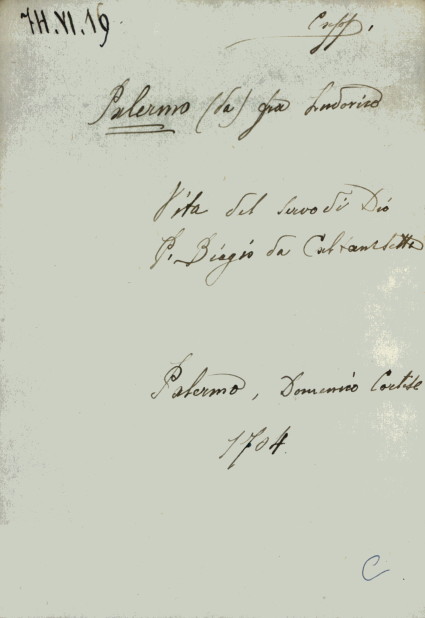 7H.VI.19
Capp.
Palermo (da) fra Ludovico
Vita del servo di Dio
P. Biagio da Caltanisetta
Palermo, Domenico Cortese
1704.
C